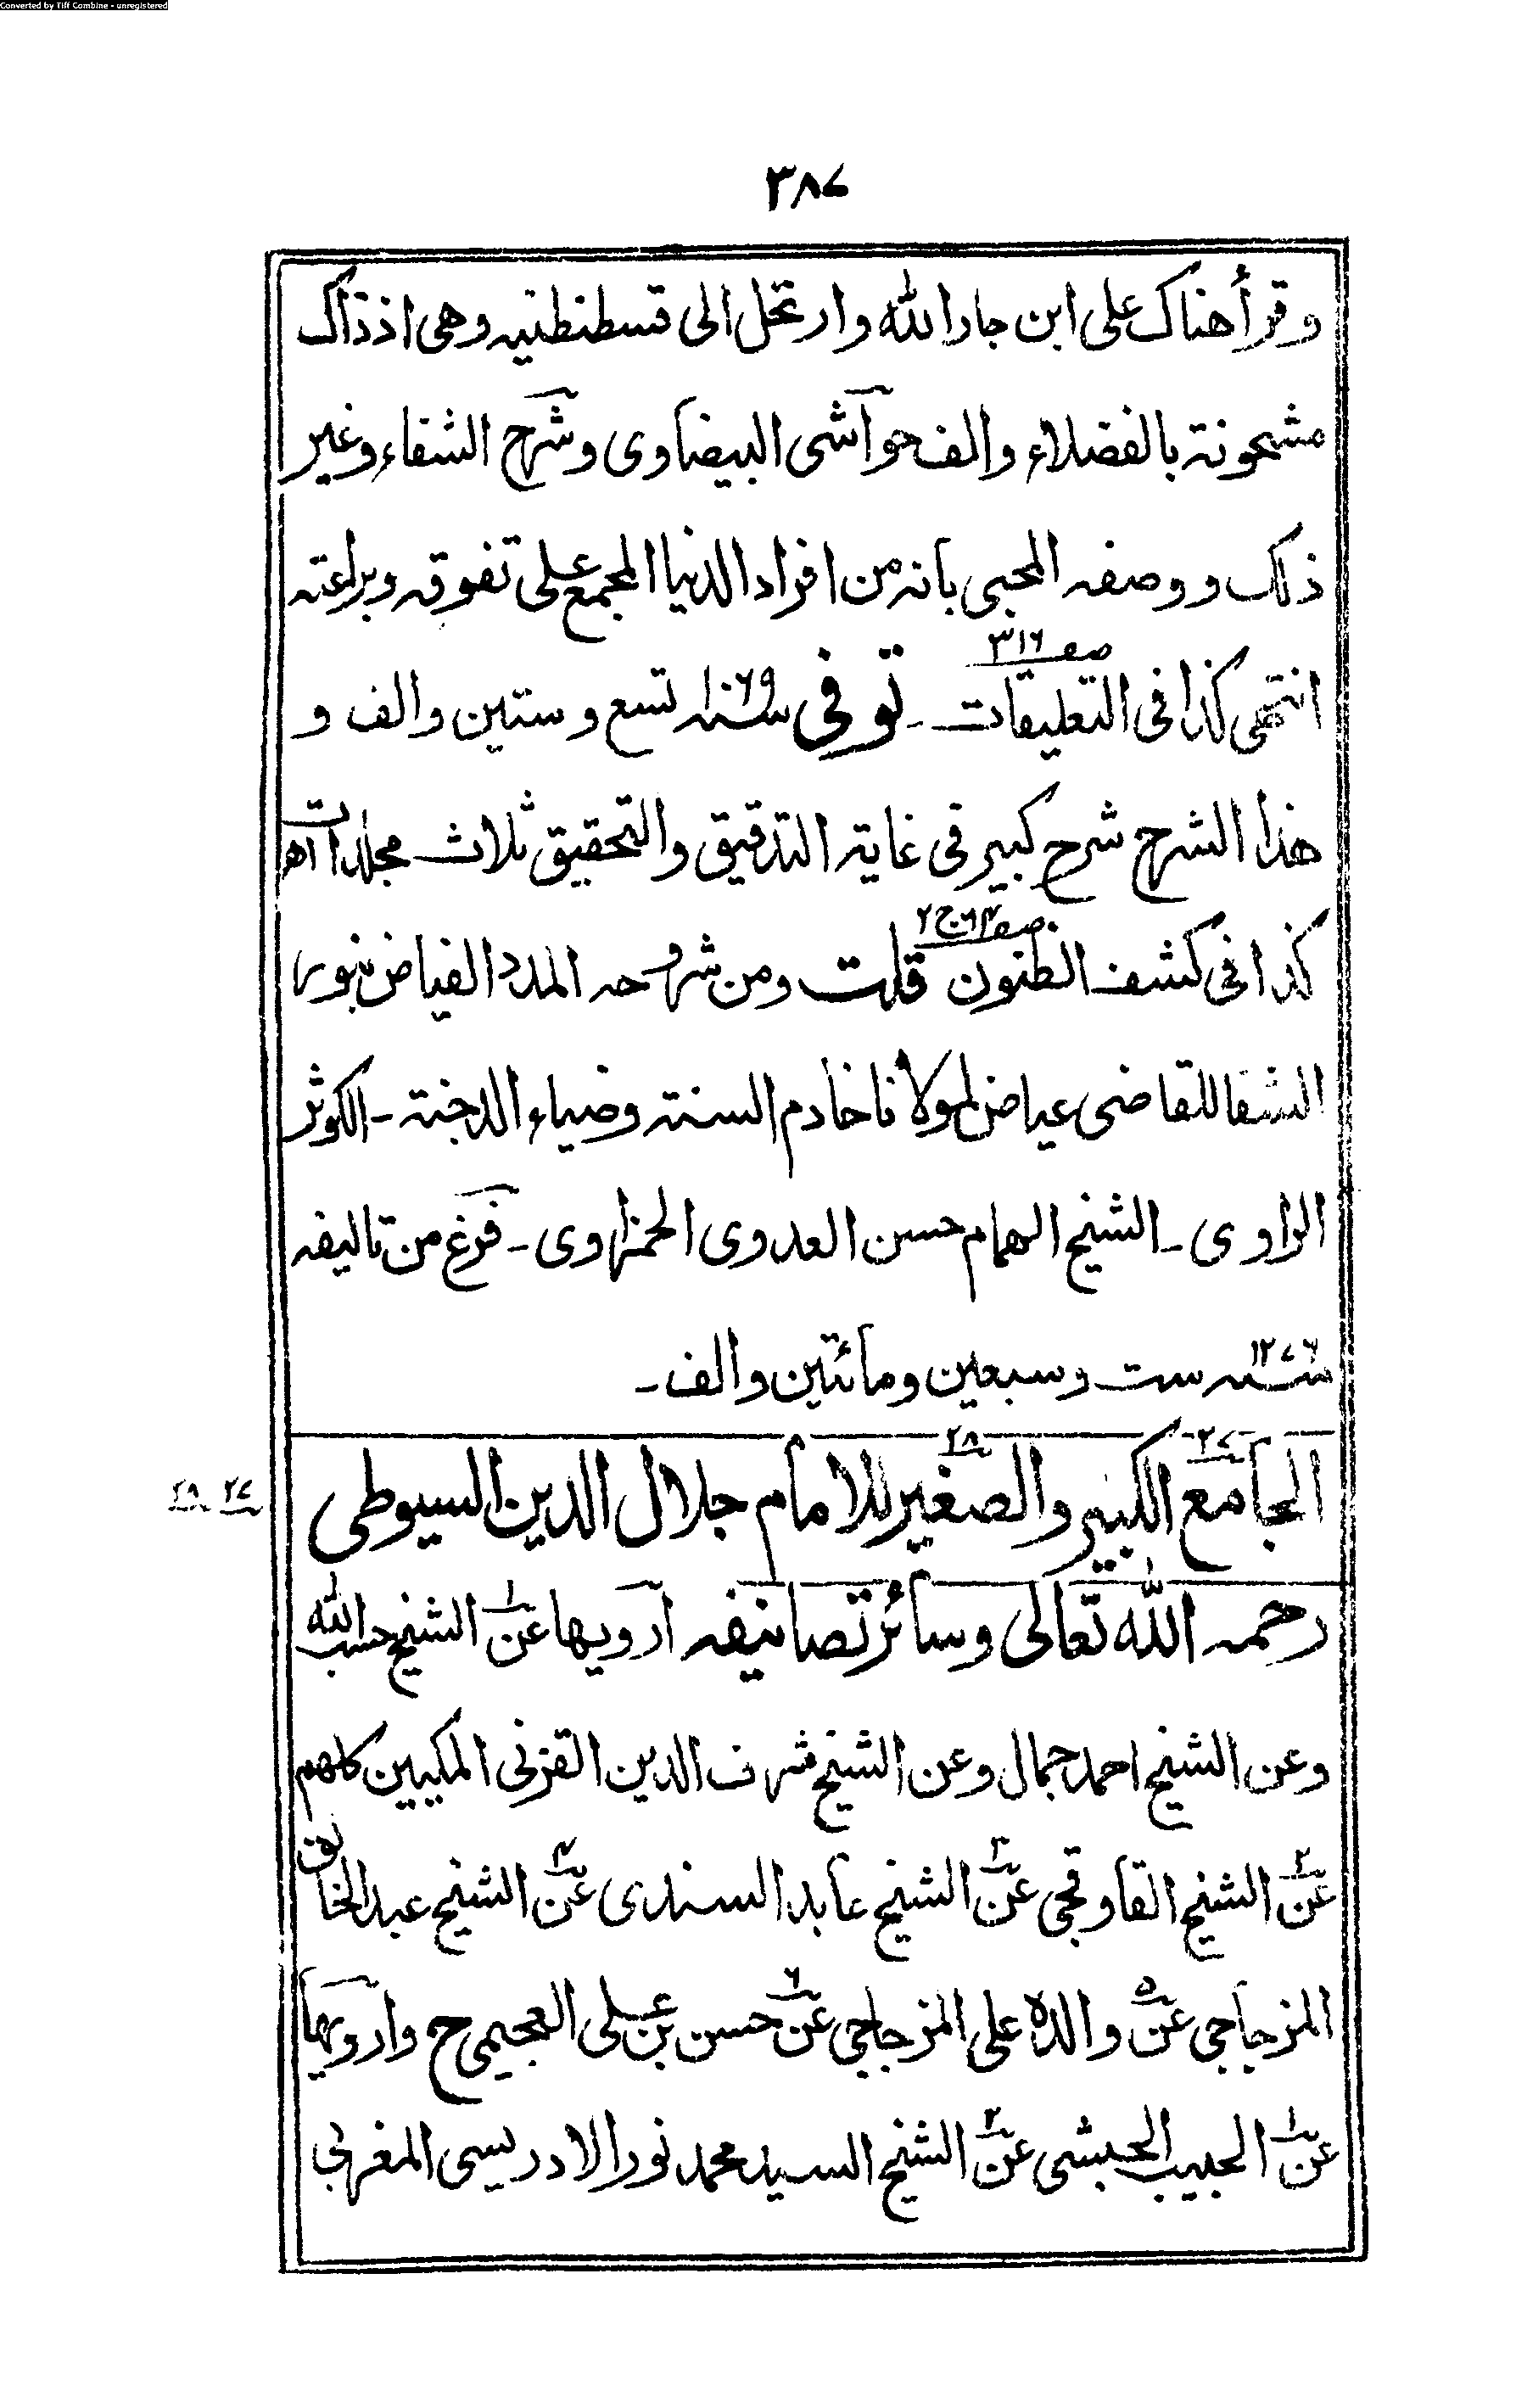 Converted by Tiff Combine - unregistered
٣٨٧
وقرأ هناك على ابن جار الله وارتحل الى قسطنطنيه وهى اذ ذاك
مشحونة بالفضلاء والف حواشى البيضاوى وشرح الشفاء وغير
ذلك ووصفه المحبى بانه من افراد الدنيا المجمع على تفوقه وبراعته
انتهى كذا فى التعليقات صفـ ٣١٦ ـ توفى سنه ١٠٦٩ تسع وستين والف و
هذا الشرح شرح كبير فى غاية التدقيق والتحقيق ثلاث مجلدات اھ
كذا فى كشف الظنون قلت ومن شروحه المدد الفياض بنور
الشفا للقاضى عياض لمولانا خادم السنة وضياء الدجنة ـ الكوثر
الراوى ـ الشيخ الهمام حسن العدوى الحمزاوى ـ فرغ من تاليفه
سنه ١٢٧٦ ست وسبعين ومائتين والف ـ
٢٧ ٢٨
الجامع ٢٧ الكبير والصغير ٢٨ للامام جلال الدين السيوطى
رحمه الله تعالى وسائر تصانيفه ارويها عن ١ الشيخ حسب الله
وعن الشيخ احمد جمال وعن الشيخ شرف الدين القزنى المكيين كلهم
عن ٢ الشيخ القاوقجى عن ٣ الشيخ عابد السندى عن ٤ الشيخ عبد الخالق
المزجاجى عن ٥ والده على المزجاجى عن ٦ حسن بن على العجيمى ح وارويها
عن ١ الحبيب الحبشى عن ٢ الشيخ السيد محمد نور الادريسى المغربى